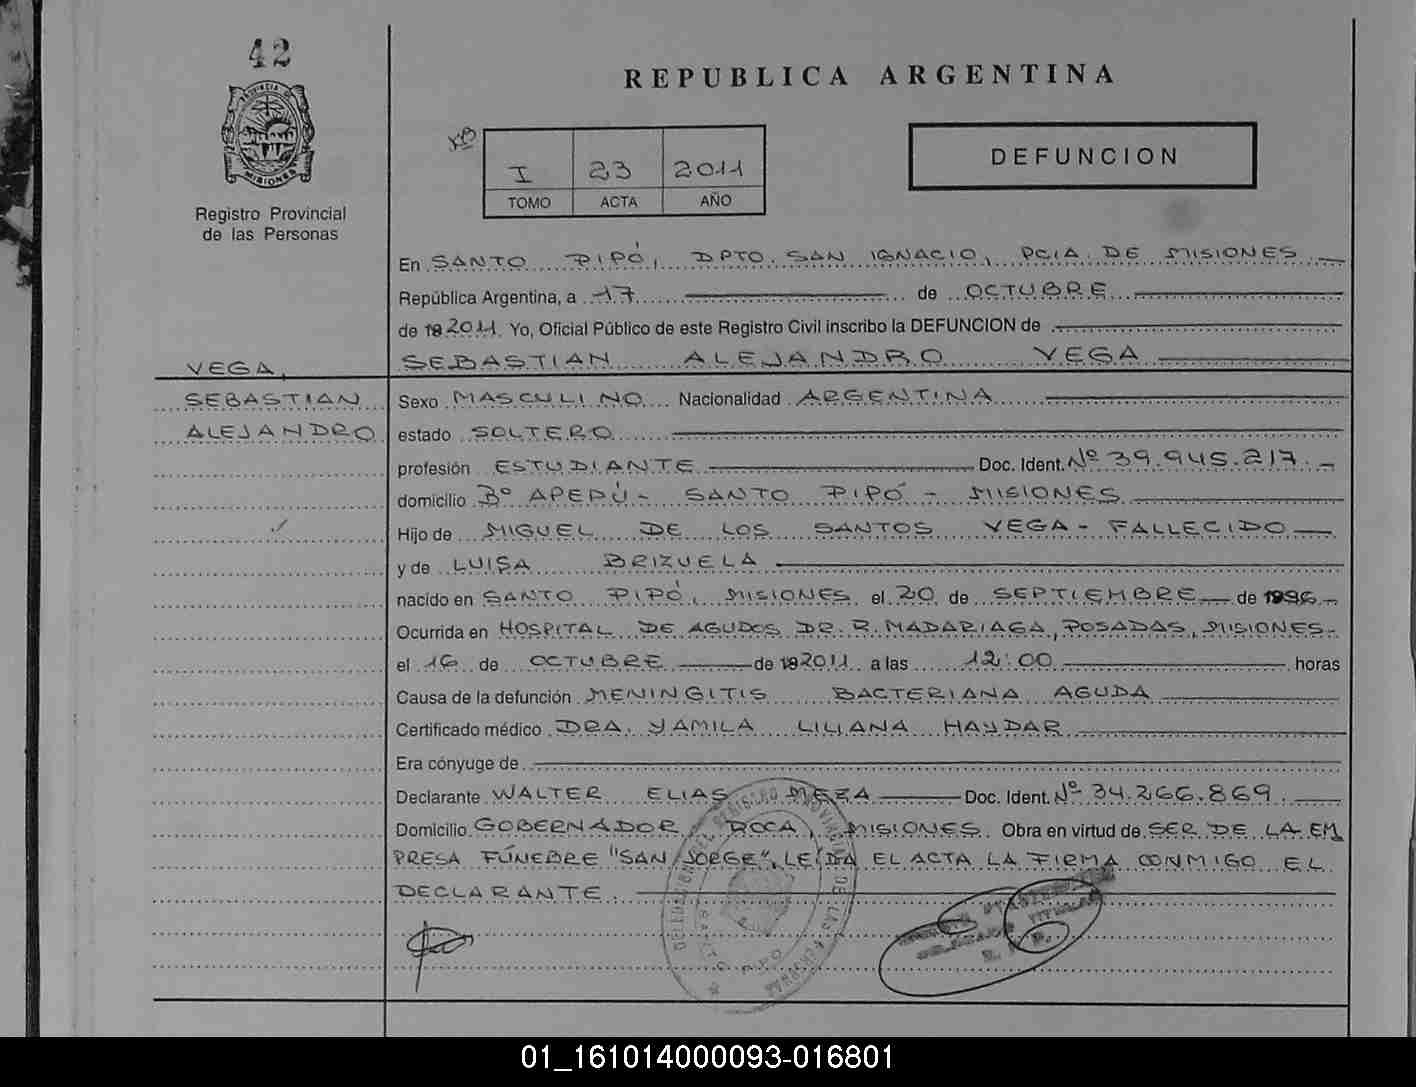 42
PROVINCIA DE
MISIONES
Registro Provincial
de las Personas
REPUBLICA ARGENTINA
I 23 2011
TOMO ACTA AÑO
DEFUNCION
En SANTO PIPÓ, DPTO. SAN IGNACIO, PCIA. DE MISIONES
República Argentina, a 17 de OCTUBRE
de 2011. Yo, Oficial Público de este Registro Civil inscribo la DEFUNCION de
SEBASTIAN ALEJANDRO VEGA
VEGA,
SEBASTIAN
ALEJANDRO
Sexo MASCULINO Nacionalidad ARGENTINA
estado SOLTERO
profesión ESTUDIANTE Doc. Ident. Nº 39.945.217.-
domicilio Bº APEPÚ - SANTO PIPÓ - MISIONES
Hijo de MIGUEL DE LOS SANTOS VEGA - FALLECIDO
y de LUISA BRIZUELA
nacido en SANTO PIPÓ, MISIONES el 20 de SEPTIEMBRE de 1996-
Ocurrida en HOSPITAL DE AGUDOS DR. R. MADARIAGA, POSADAS, MISIONES-
el 16 de OCTUBRE de 2011 a las 12:00 horas
Causa de la defunción MENINGITIS BACTERIANA AGUDA
Certificado médico DRA. YAMILA LILIANA HAYDAR
Era cónyuge de
Declarante WALTER ELIAS MEZA Doc. Ident. Nº 34.266.869.
Domicilio GOBERNADOR ROCA, MISIONES. Obra en virtud de SER DE LA EM
PRESA FÚNEBRE "SAN JORGE", LEÍDA EL ACTA LA FIRMA CONMIGO EL
DECLARANTE.
DELEGACION DEL REGISTRO PROVINCIAL DE LAS PERSONAS
SANTO PIPO
01_161014000093-016801